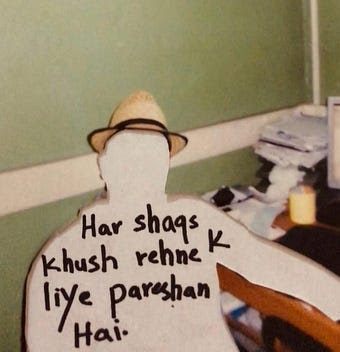 Har shaqs
khush rehne K
liye pareshan
Hai.